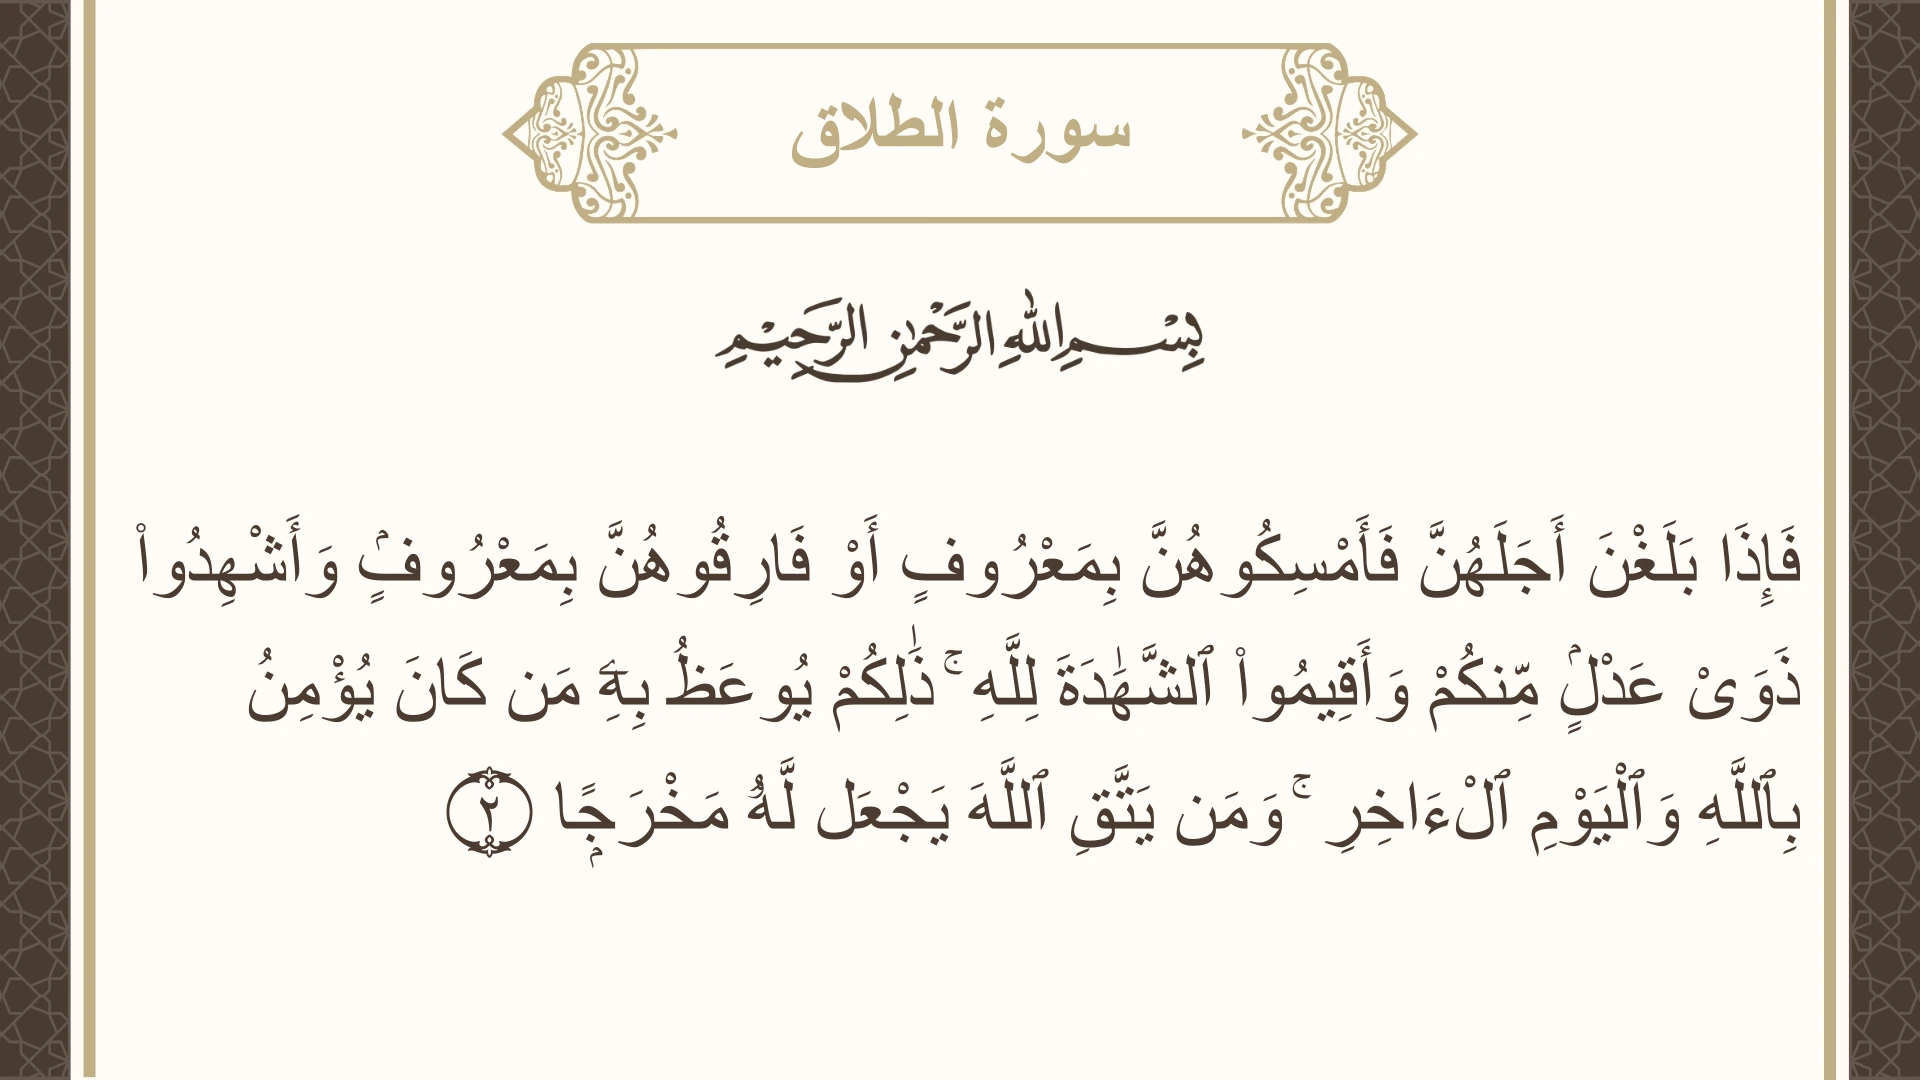 سورة الطلاق
بِسْمِ اللهِ الرَّحْمٰنِ الرَّحِيْمِ
فَإِذَا بَلَغْنَ أَجَلَهُنَّ فَأَمْسِكُوهُنَّ بِمَعْرُوفٍ أَوْ فَارِقُوهُنَّ بِمَعْرُوفٍۢ وَأَشْهِدُوا۟
ذَوَىْ عَدْلٍۢ مِّنكُمْ وَأَقِيمُوا۟ ٱلشَّهَٰدَةَ لِلَّهِ ۚ ذَٰلِكُمْ يُوعَظُ بِهِۦ مَن كَانَ يُؤْمِنُ
بِٱللَّهِ وَٱلْيَوْمِ ٱلْءَاخِرِ ۚ وَمَن يَتَّقِ ٱللَّهَ يَجْعَل لَّهُۥ مَخْرَجًۭا ٢